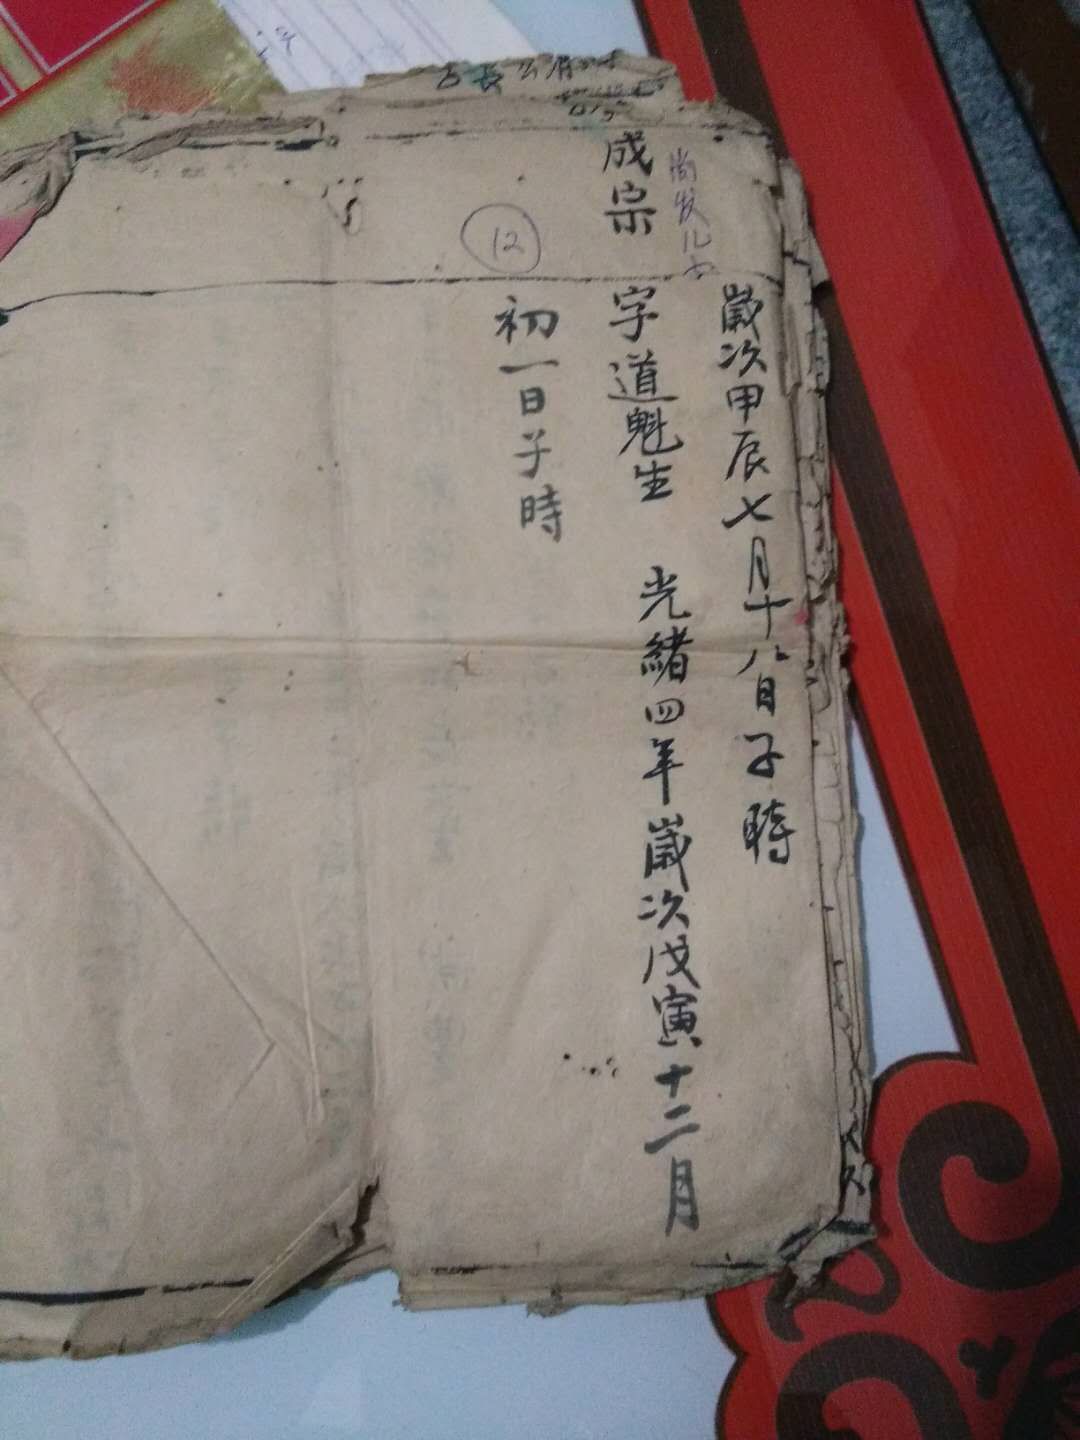 歲次甲辰七月十八日子時
成宗
字道魁生 光緒四年歲次戊寅十二月
初一日子時
12